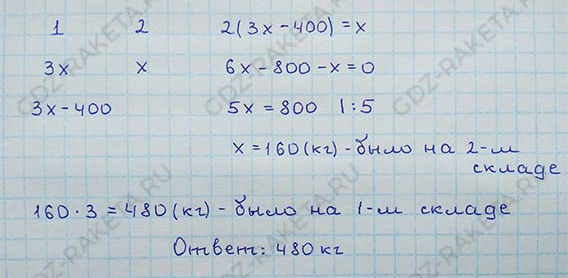 1 2 2(3x-400)=x
3x x 6x-800-x=0
3x-400 5x=800 |:5
x=160(кг)-было на 2-м
складе
160·3=480(кг)-было на 1-м складе
Ответ: 480 кг
GDZ-RAKETA.RU